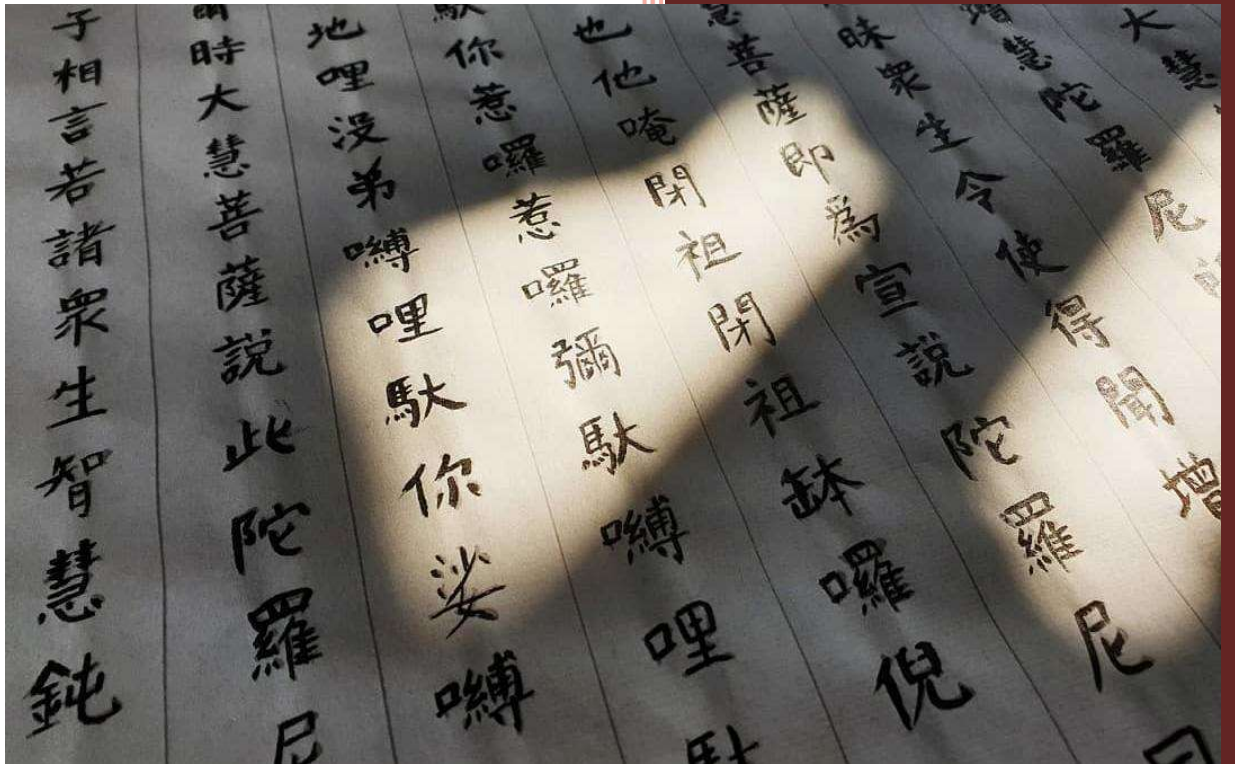 大慧
增慧陀羅尼
昧衆生令使得聞增
慧菩薩即爲宣説陀羅尼曰
也他唵閉祖閉祖鉢囉倪
馱你惹囉惹囉彌馱嚩哩馱
地哩没弟嚩哩馱你娑嚩
爾時大慧菩薩説此陀羅尼
子相言若諸衆生智慧鈍